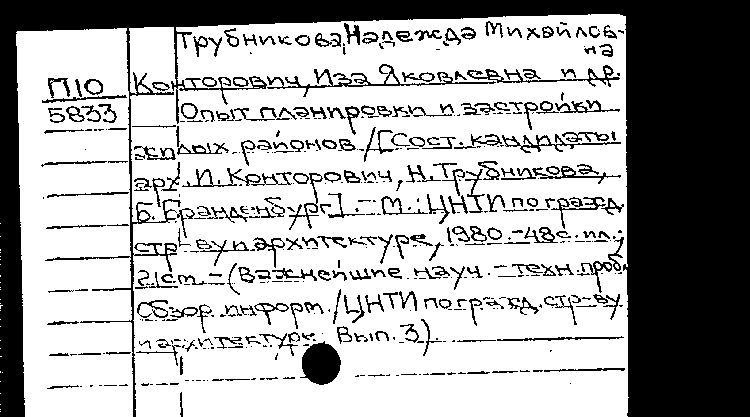 Трубникова, Надежда Михайлов-
на
П10
5833
Конторович, Иза Яковлевна и др.
Опыт планировки и застройки
жилых районов / [Сост. кандидаты
арх. И. Конторович, Н. Трубникова,
Б. Бранденбург]. - М.: ЦНТИ по гражд.
стр-ву и архитектуре, 1980. - 48 с. ил.;
21 см. - (Важнейшие науч. - техн. пробл.
Обзор. информ. / ЦНТИ по гражд. стр-ву
и архитектуре. Вып. 3).